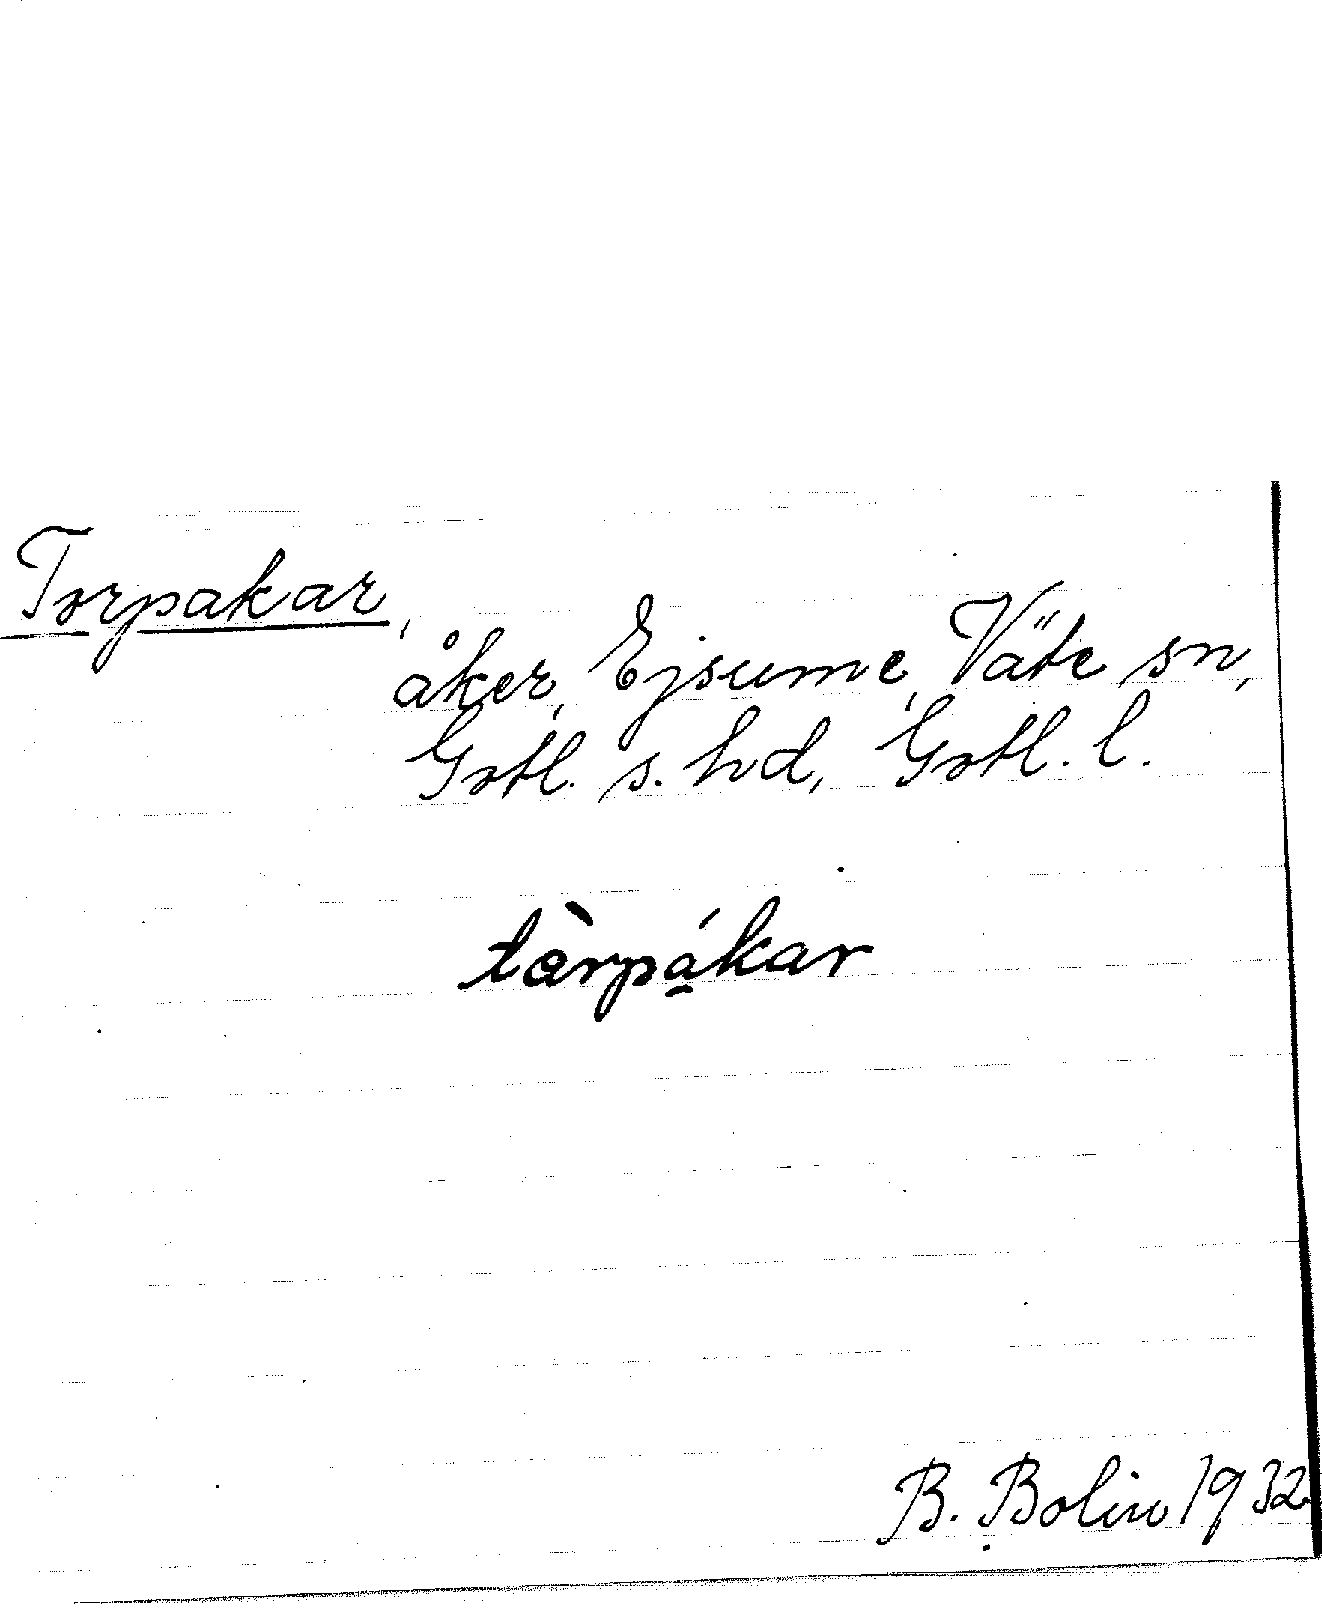 Torpakar,
åker, Ejsume, Väte sn,
Gotl. s. hd, Gotl. l.
tàrpá̱kar
B. Bolin 1932